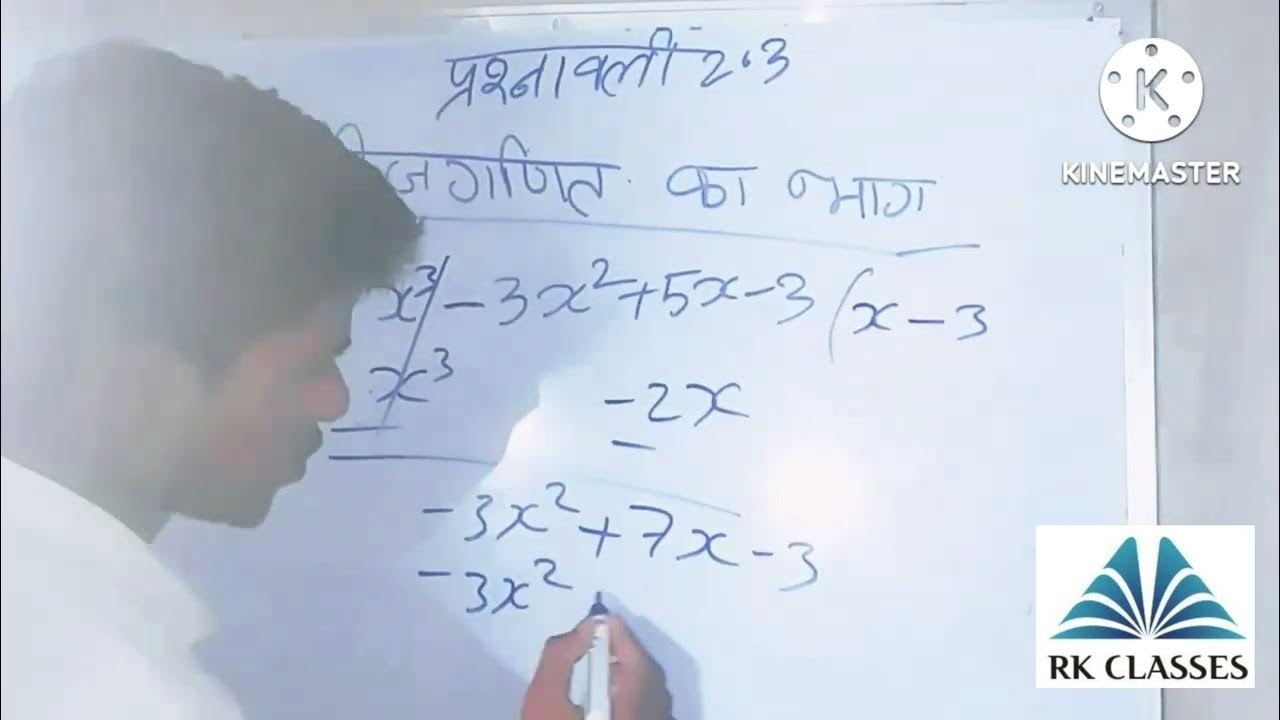 प्रश्नावली 2.3
बीजगणित का भाग
x³ - 3x² + 5x - 3 ( x - 3
x³ - 2x
- 3x² + 7x - 3
- 3x²
K
KINEMASTER
RK CLASSES